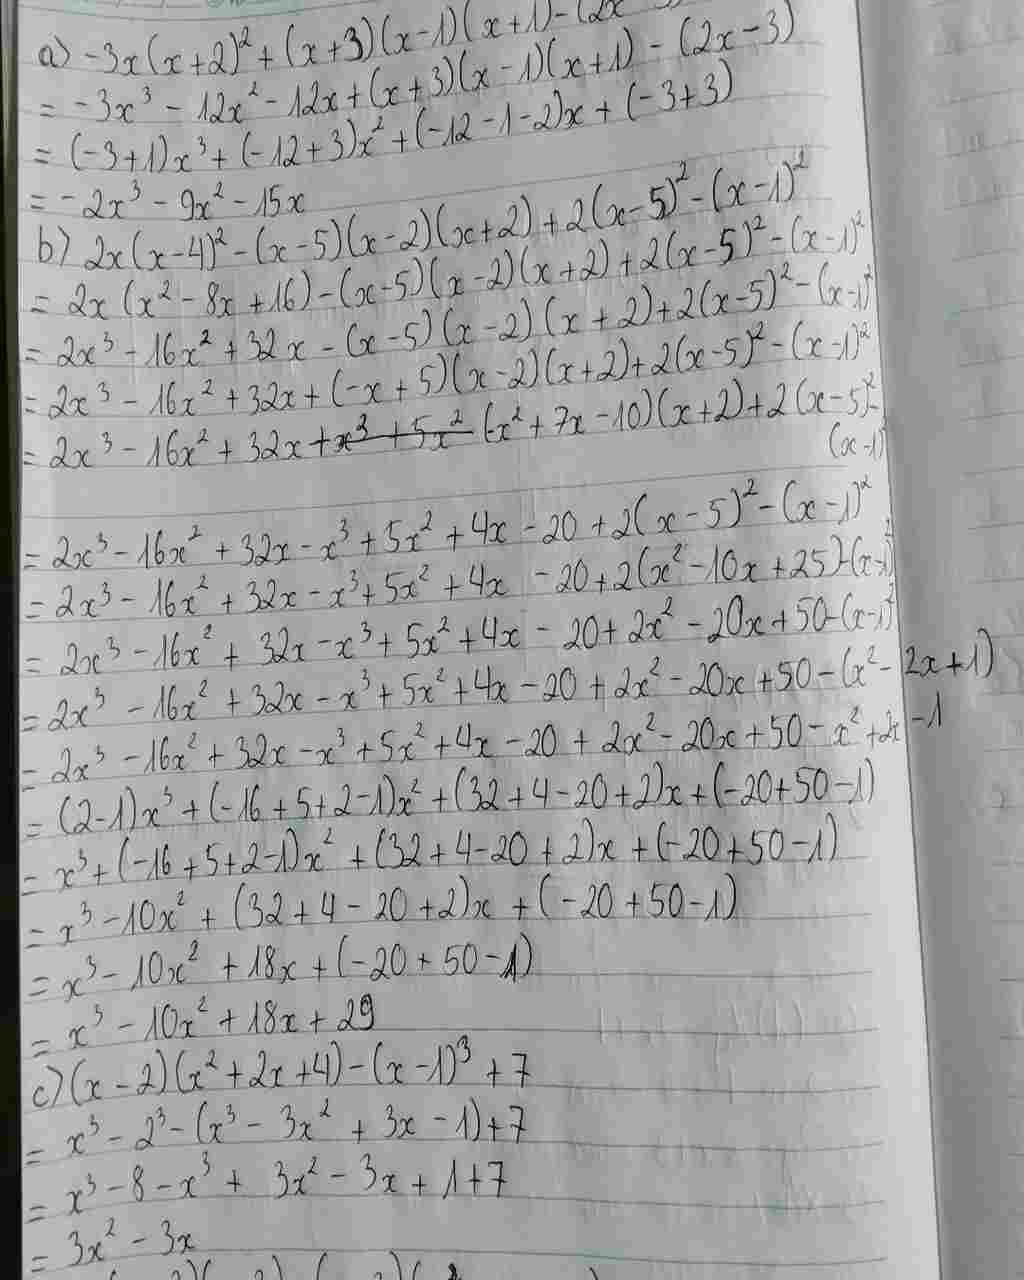 a) -3x(x+2)² + (x+3)(x-1)(x+1) - (2x
= -3x³ - 12x² - 12x + (x+3)(x-1)(x+1) - (2x-3)
= (-3+1)x³ + (-12+3)x² + (-12-1-2)x + (-3+3)
= -2x³ - 9x² - 15x
b) 2x(x-4)² - (x-5)(x-2)(x+2) + 2(x-5)² - (x-1)²
= 2x(x² - 8x + 16) - (x-5)(x-2)(x+2) + 2(x-5)² - (x-1)²
= 2x³ - 16x² + 32x - (x-5)(x-2)(x+2) + 2(x-5)² - (x-1)²
= 2x³ - 16x² + 32x + (-x+5)(x-2)(x+2) + 2(x-5)² - (x-1)²
= 2x³ - 16x² + 32x + x³ + 5x² (-x² + 7x - 10)(x+2) + 2(x-5)² -
(x-1)
= 2x³ - 16x² + 32x - x³ + 5x² + 4x - 20 + 2(x-5)² - (x-1)²
= 2x³ - 16x² + 32x - x³ + 5x² + 4x - 20 + 2(x² - 10x + 25) - (x-1)²
= 2x³ - 16x² + 32x - x³ + 5x² + 4x - 20 + 2x² - 20x + 50 - (x-1)²
= 2x³ - 16x² + 32x - x³ + 5x² + 4x - 20 + 2x² - 20x + 50 - (x² - 2x + 1)
= 2x³ - 16x² + 32x - x³ + 5x² + 4x - 20 + 2x² - 20x + 50 - x² + 2x - 1
= (2-1)x³ + (-16+5+2-1)x² + (32+4-20+2)x + (-20+50-1)
= x³ + (-16+5+2-1)x² + (32+4-20+2)x + (-20+50-1)
= x³ - 10x² + (32+4-20+2)x + (-20+50-1)
= x³ - 10x² + 18x + (-20+50-1)
= x³ - 10x² + 18x + 29
c) (x-2)(x² + 2x + 4) - (x-1)³ + 7
= x³ - 2³ - (x³ - 3x² + 3x - 1) + 7
= x³ - 8 - x³ + 3x² - 3x + 1 + 7
= 3x² - 3x